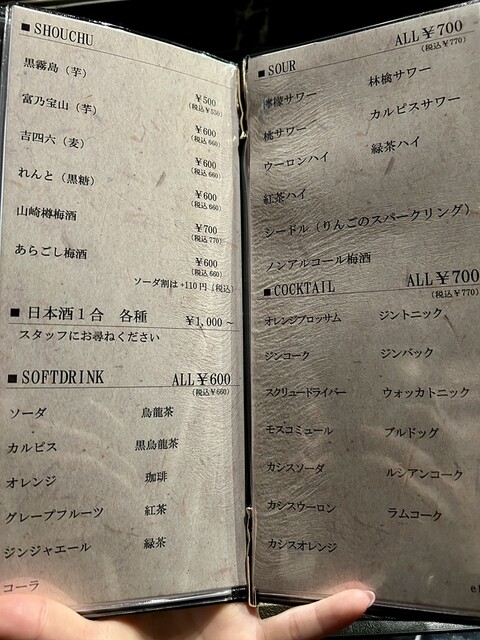 ■ SHOUCHU
黒霧島（芋） ￥500
（税込￥550）
富乃宝山（芋） ￥600
（税込660）
吉四六（麦） ￥600
（税込660）
れんと（黒糖） ￥600
（税込660）
山崎樽梅酒 ￥700
（税込770）
あらごし梅酒 ￥600
（税込660）
ソーダ割は+110円（税込）
■ 日本酒１合　各種 ￥1,000～
スタッフにお尋ねください
■ SOFTDRINK ALL￥600
（税込￥660）
ソーダ 烏龍茶
カルピス 黒烏龍茶
オレンジ 珈琲
グレープフルーツ 紅茶
ジンジャエール 緑茶
コーラ
■ SOUR ALL￥700
（税込￥770）
檸檬サワー 林檎サワー
桃サワー カルピスサワー
ウーロンハイ 緑茶ハイ
紅茶ハイ
シードル（りんごのスパークリング）
ノンアルコール梅酒
■ COCKTAIL ALL￥700
（税込￥770）
オレンジブロッサム ジントニック
ジンコーク ジンバック
スクリュードライバー ウォッカトニック
モスコミュール ブルドッグ
カシスソーダ ルシアンコーク
カシスウーロン ラムコーク
カシスオレンジ